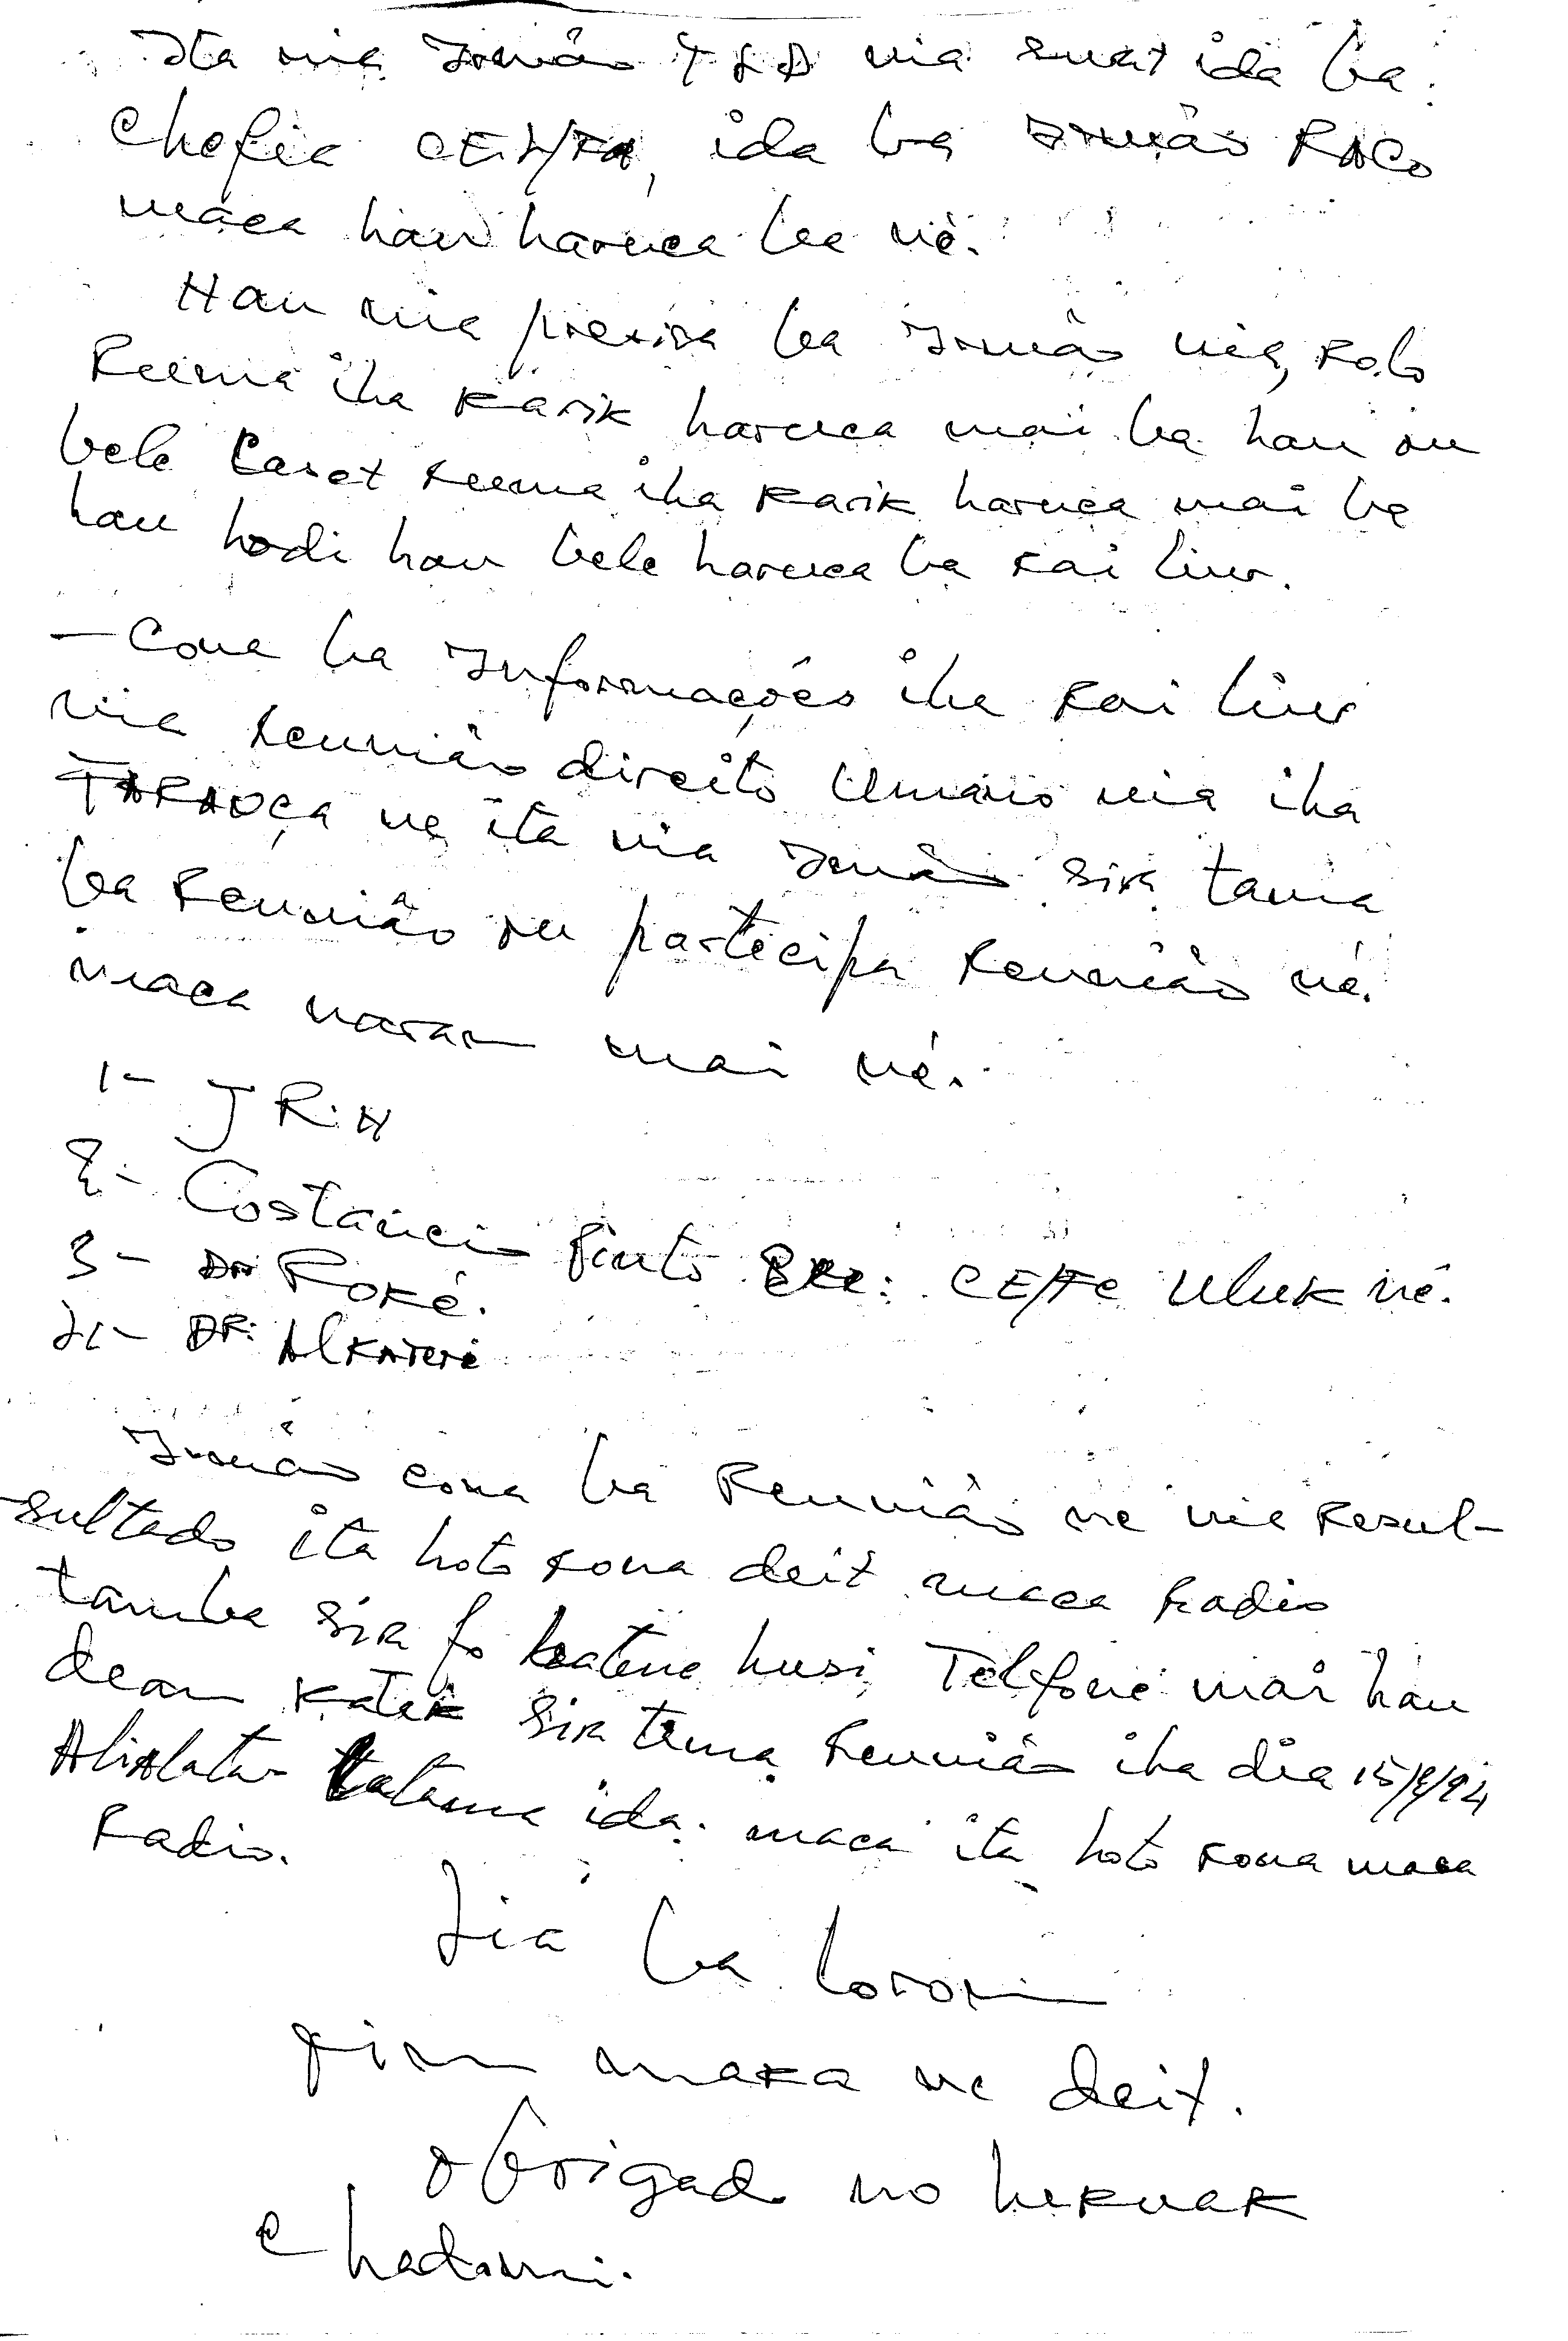 Ita nia Irmão TLD nia surat ida ba
Chefia CEL/FA, ida ba Irmão RACo
maca hau haruca ba né.
Hau nia precisa ba Irmão nia, Rolo
Keema iha Karik haruca mai ba hau ou
bele Caset Keema iha Karik haruca mai ba
hau hodi hau bele haruca ba Rai liur.
- Cona ba Informações iha Rai liur
nia Reunnião direito Umano nia iha
né ita nia Irmão sira tama
ba Reunnião ou participa Reunnião né.
maca naran mai né.
1- JR.H
2- Costancio Pinto CE/FC Uluk né.
3- DR Roké.
4- DR: AlKAteri
Irmão cona ba Reunnião ne nia Resul-
sultado ita hoto rona deit maca Radio
tamba sira fo hatene husi Telfone mai hau
dean Katak sira tama Reunnião iha dia
ida. maca ita hoto rona maca
Radio.
Lia ba loron
maka ne deit.
Obrigado no hakuak
e hadomi.